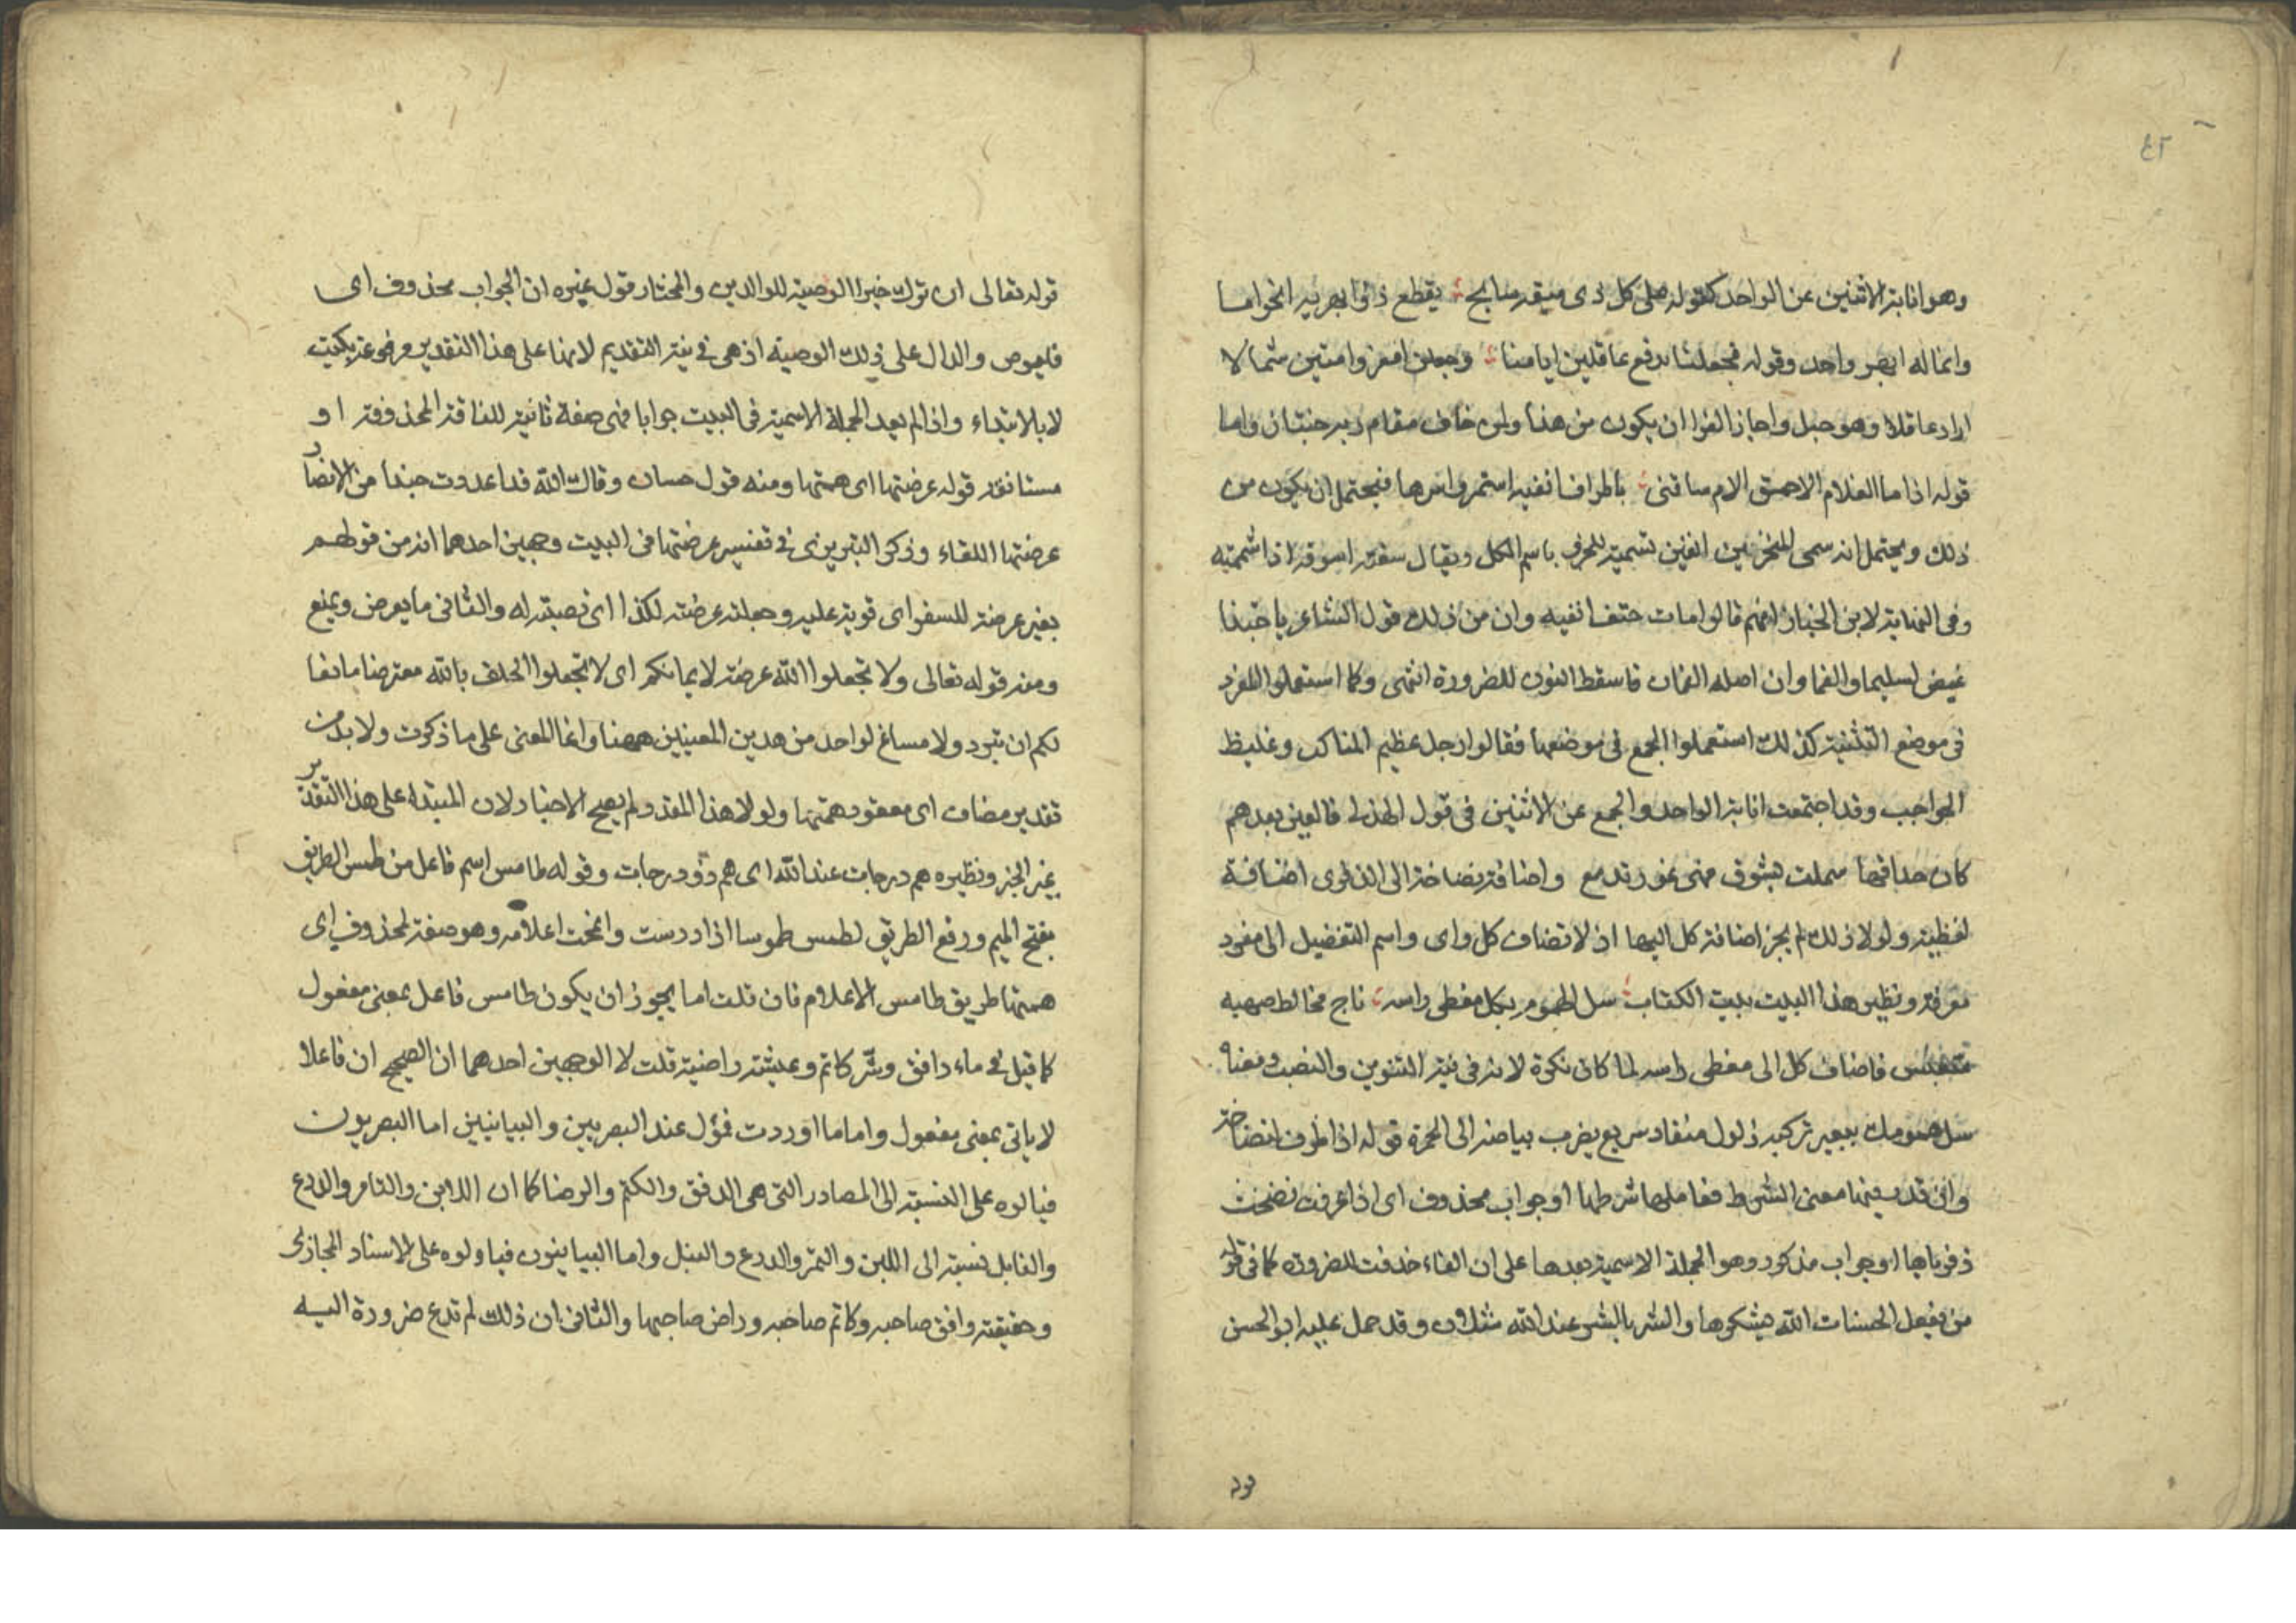 ٤٢
وهو انابة الاثنين عن الواحد كقوله على كل ذى ميقه سابح يقطع ذو ابهريه الحزاما
وانما له ابهر واحد وقوله فجعلنا مدفع عاقلين ايامنا وجعلن امعز وامتين شمالا
اراد عاقلا وهو جبل واجاز الفرا ان يكون من هذا ولمن خاف مقام ربه جنتان واما
قوله اذا ما الغلام الاحمق الام سافنى باطراف انفيه استمر واسرها فيحتمل ان يكون من
ذلك ويحتمل انه سمى المنخرين انفين تسمية للجزء باسم الكل ويقال سفته اسوفه اذا شممته
وفى النهاية لابن الخباز انهم قالوا مات حتف انفيه وان من ذلك قول الشاعر يا حبذا
عينى سليما والفما وان اصله الفمان فاسقط النون للضرورة انتهى وكما استعملوا المفرد
فى موضع التثنية كذلك استعملوا الجمع فى موضعها فقالوا رجل عظيم المناكب وغليظ
الحواجب وقد اجتمعت انابة الواحد والجمع عن الاثنين فى قول الهذلى فالعين بعدهم
كان حداقها سملت بشوك فهى عور تدمع واضافة نضاخة الى الذفرى اضافة
لفظية ولولا ذلك لم يجز اضافة كل اليها اذ لا تضاف كل واى واسم التفضيل الى مفرد
معرفة ونظير هذا البيت بيت الكتاب سل الهموم بكل معطى راسه ناج مخالط صهبه
متعيس فاضاف كل الى معطى راسه لما كان نكرة لانه فى نية التنوين والنصب ومعناه
سل همومك ببعير تركبه ذلول منقاد سريع يضرب بياضه الى الحمرة قوله اذا ظرف لنضاخة
وان قدر فيها معنى الشرط فعاملها شرطها او جواب محذوف اى اذا عرقت نضحت
ذفرياها او جواب مذكور وهو الجملة الاسمية بعدها على ان الفاء حذفت للضرورة كما فى قوله
من يفعل الحسنات الله يشكرها والشر بالشر عند الله مثلان وقد حمل عليه ابو الحسن
قوله
قوله تعالى ان ترك خيرا الوصية للوالدين والمختار قول غيره ان الجواب محذوف اى
فليوص والدال على ذلك الوصية اذ هى فى نية التقديم لانها على هذا التقدير مرفوعة بكتب
لا بالابتداء واذا لم يعد الجملة الاسمية فى البيت جوابا فهى صفة ثانية للناقة المحذوفة او
مستانفة قوله عرضتها اى همتها ومنه قول حسان وقال الله قد اعددت جندا من الانصار
عرضتها اللقاء وذكر التبريزى فى تفسير عرضتها فى البيت وجهين احدهما انه من قولهم
بعير عرضة للسفر اى قوية عليه وجعلته عرضة لكذا اى نصبته له والثانى ما يعرض ويمنع
ومنه قوله تعالى ولا تجعلوا الله عرضة لايمانكم اى لا تجعلوا الحلف بالله معترضا مانعا
لكم ان تبروا ولا مساغ لواحد من هدين المعنيين ههنا وانما المعنى على ما ذكرت ولا بد من
تقدير مضاف اى معقود همتها ولولا هذا المقدر لم يصح الاخبار لان المبتداء على هذا التقدير
غير الخبر ونظيره هم درجات عند الله اى هم ذوو درجات وقوله طامس اسم فاعل من طمس الطريق
بفتح الميم ورفع الطريق لطمس طموسا اذا درست وانمحت اعلامه وهو صفة لمحذوف اى
همتها طريق طامس الاعلام فان قلت اما يجوز ان يكون طامس فاعل بمعنى مفعول
كما قيل فى ماء دافق وسر كاتم وعيشة راضية قلت لا لوجهين احدهما ان الصحيح ان فاعلا
لا ياتى بمعنى مفعول واما ما اوردت فمؤل عند البصريين والبيانيين اما البصريون
فيا لوه على النسبة الى المصادر التى هى الدفق والكتم والرضا كما ان اللابن والتامر والدارع
والنابل نسبة الى اللبن والتمر والدرع والنبل واما البيانيون فياولوه على الاسناد المجازى
وحقيقته دافق صاحبه وكاتم صاحبه وراض صاحبها والثانى ان ذلك لم تدع ضرورة اليه